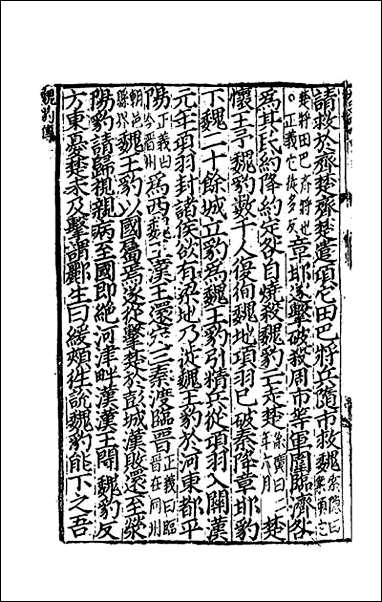 請救於齊楚齊楚遣項它田巴將兵隨市救魏索隱曰案項它
楚將田巴齊將也。正義它徒多反章邯遂擊破殺周市等軍圍臨濟咎
爲其民約降約定咎自燒殺魏豹亡走楚徐廣曰二年六月楚
懷王予魏豹數千人復徇魏地項羽已破秦降章邯豹
下魏二十餘城立豹爲魏王豹引精兵從項羽入關漢
元年項羽封諸侯欲有梁地乃徙魏王豹於河東都平
陽正義曰今晉州爲西魏王漢王還定三秦渡臨晉正義曰臨晉在同州
朝邑縣界魏王豹以國屬焉遂從擊楚於彭城漢敗還至滎
陽豹請歸視親病至國即絕河津畔漢漢王聞魏豹反
方東憂楚未及擊謂酈生曰緩頰往說魏豹能下之吾
魏豹傳